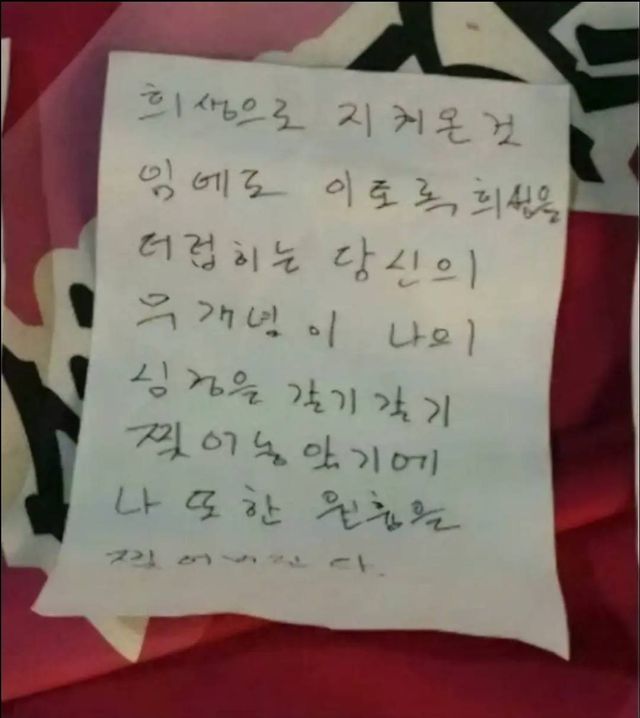 희생으로 지켜온 것
임에도 이토록 희생을
더럽히는 당신의
무개념이 나의
심장을 갈기갈기
찢어놓았기에
나 또한 원흉을
찢어버린다.